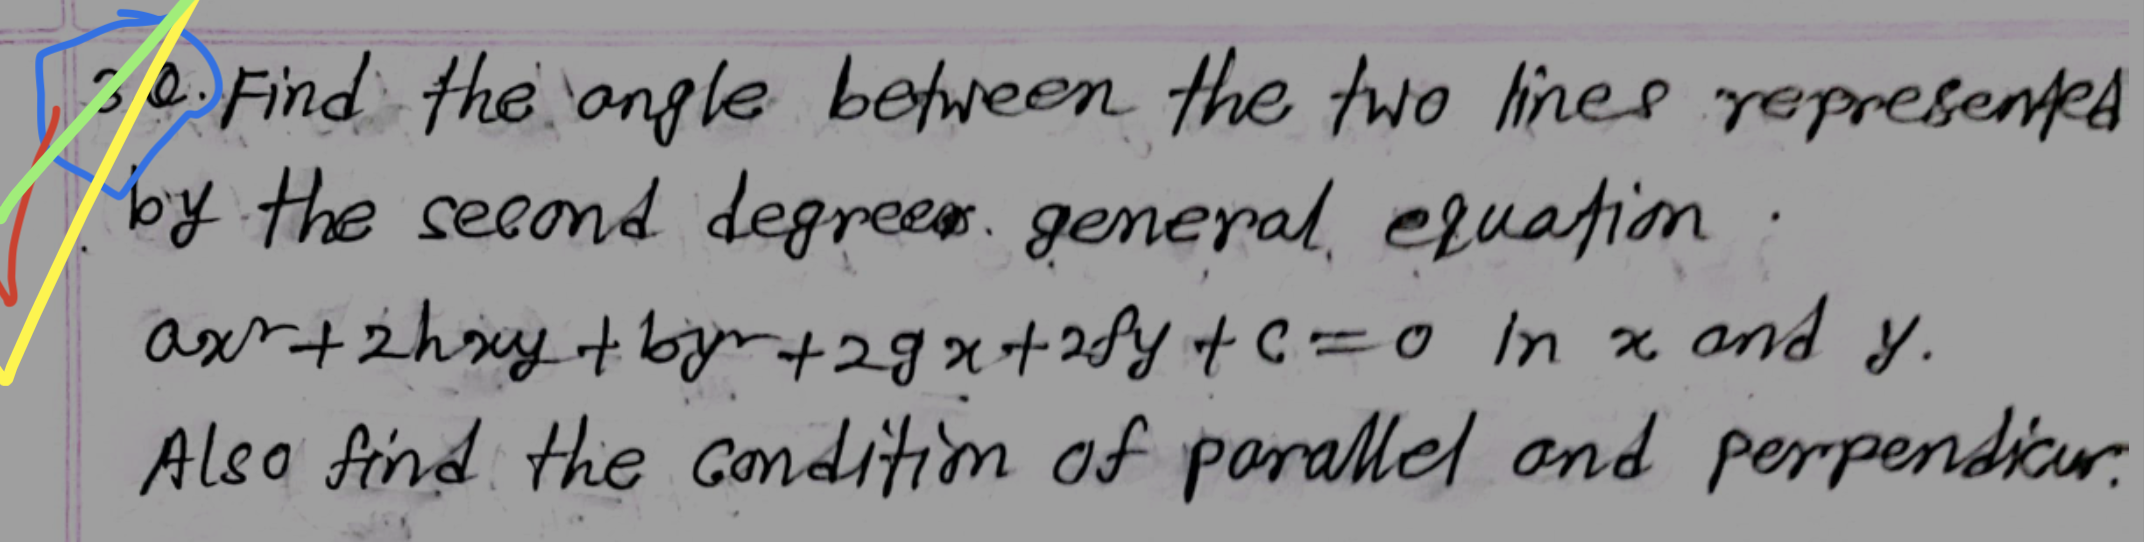 3Q. Find the angle between the two lines represented
by the second degree general equation
ax² + 2hxy + by² + 2gx + 2fy + c = 0 in x and y.
Also find the condition of parallel and perpendicur.